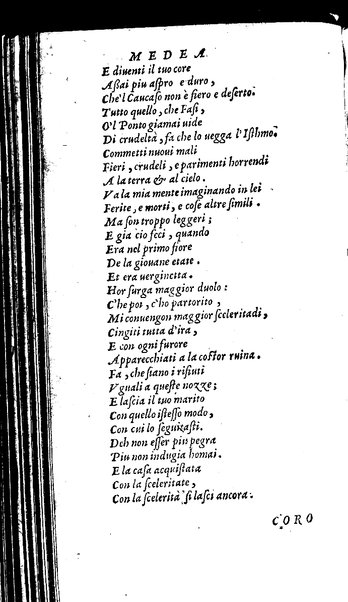 MEDEA.
E diuenti il tuo core
Assai piu aspro e duro,
Che'l Caucaso non è fiero e deserto.
Tutto quello, che Fasi,
O'l Ponto giamai uide
Di crudeltà, fa che lo uegga l'Isthmo.
Commetti nuoui mali
Fieri, crudeli, e parimenti horrendi
A la terra & al cielo.
Va la mia mente imaginando in lei
Ferite, e morti, e cose altre simili.
Ma son troppo leggeri;
E gia ciò feci, quando
Era nel primo fiore
De la giouane etate.
Et era uerginetta.
Hor surga maggior duolo:
C'he poi, c'ho partorito,
Mi conuengon maggior sceleritadi,
Cingiti tutta d'ira,
E con ogni furore
Apparecchiati a la costor ruina.
Fa, che siano i rifiuti
Vguali a queste nozze;
E lascia il tuo marito
Con quello istesso modo,
Con cui lo seguisti.
Deh non esser piu pegra
Piu non indugia homai.
E la casa acquistata
Con la sceleritate,
Con la scelerità si lasci ancora.
CORO